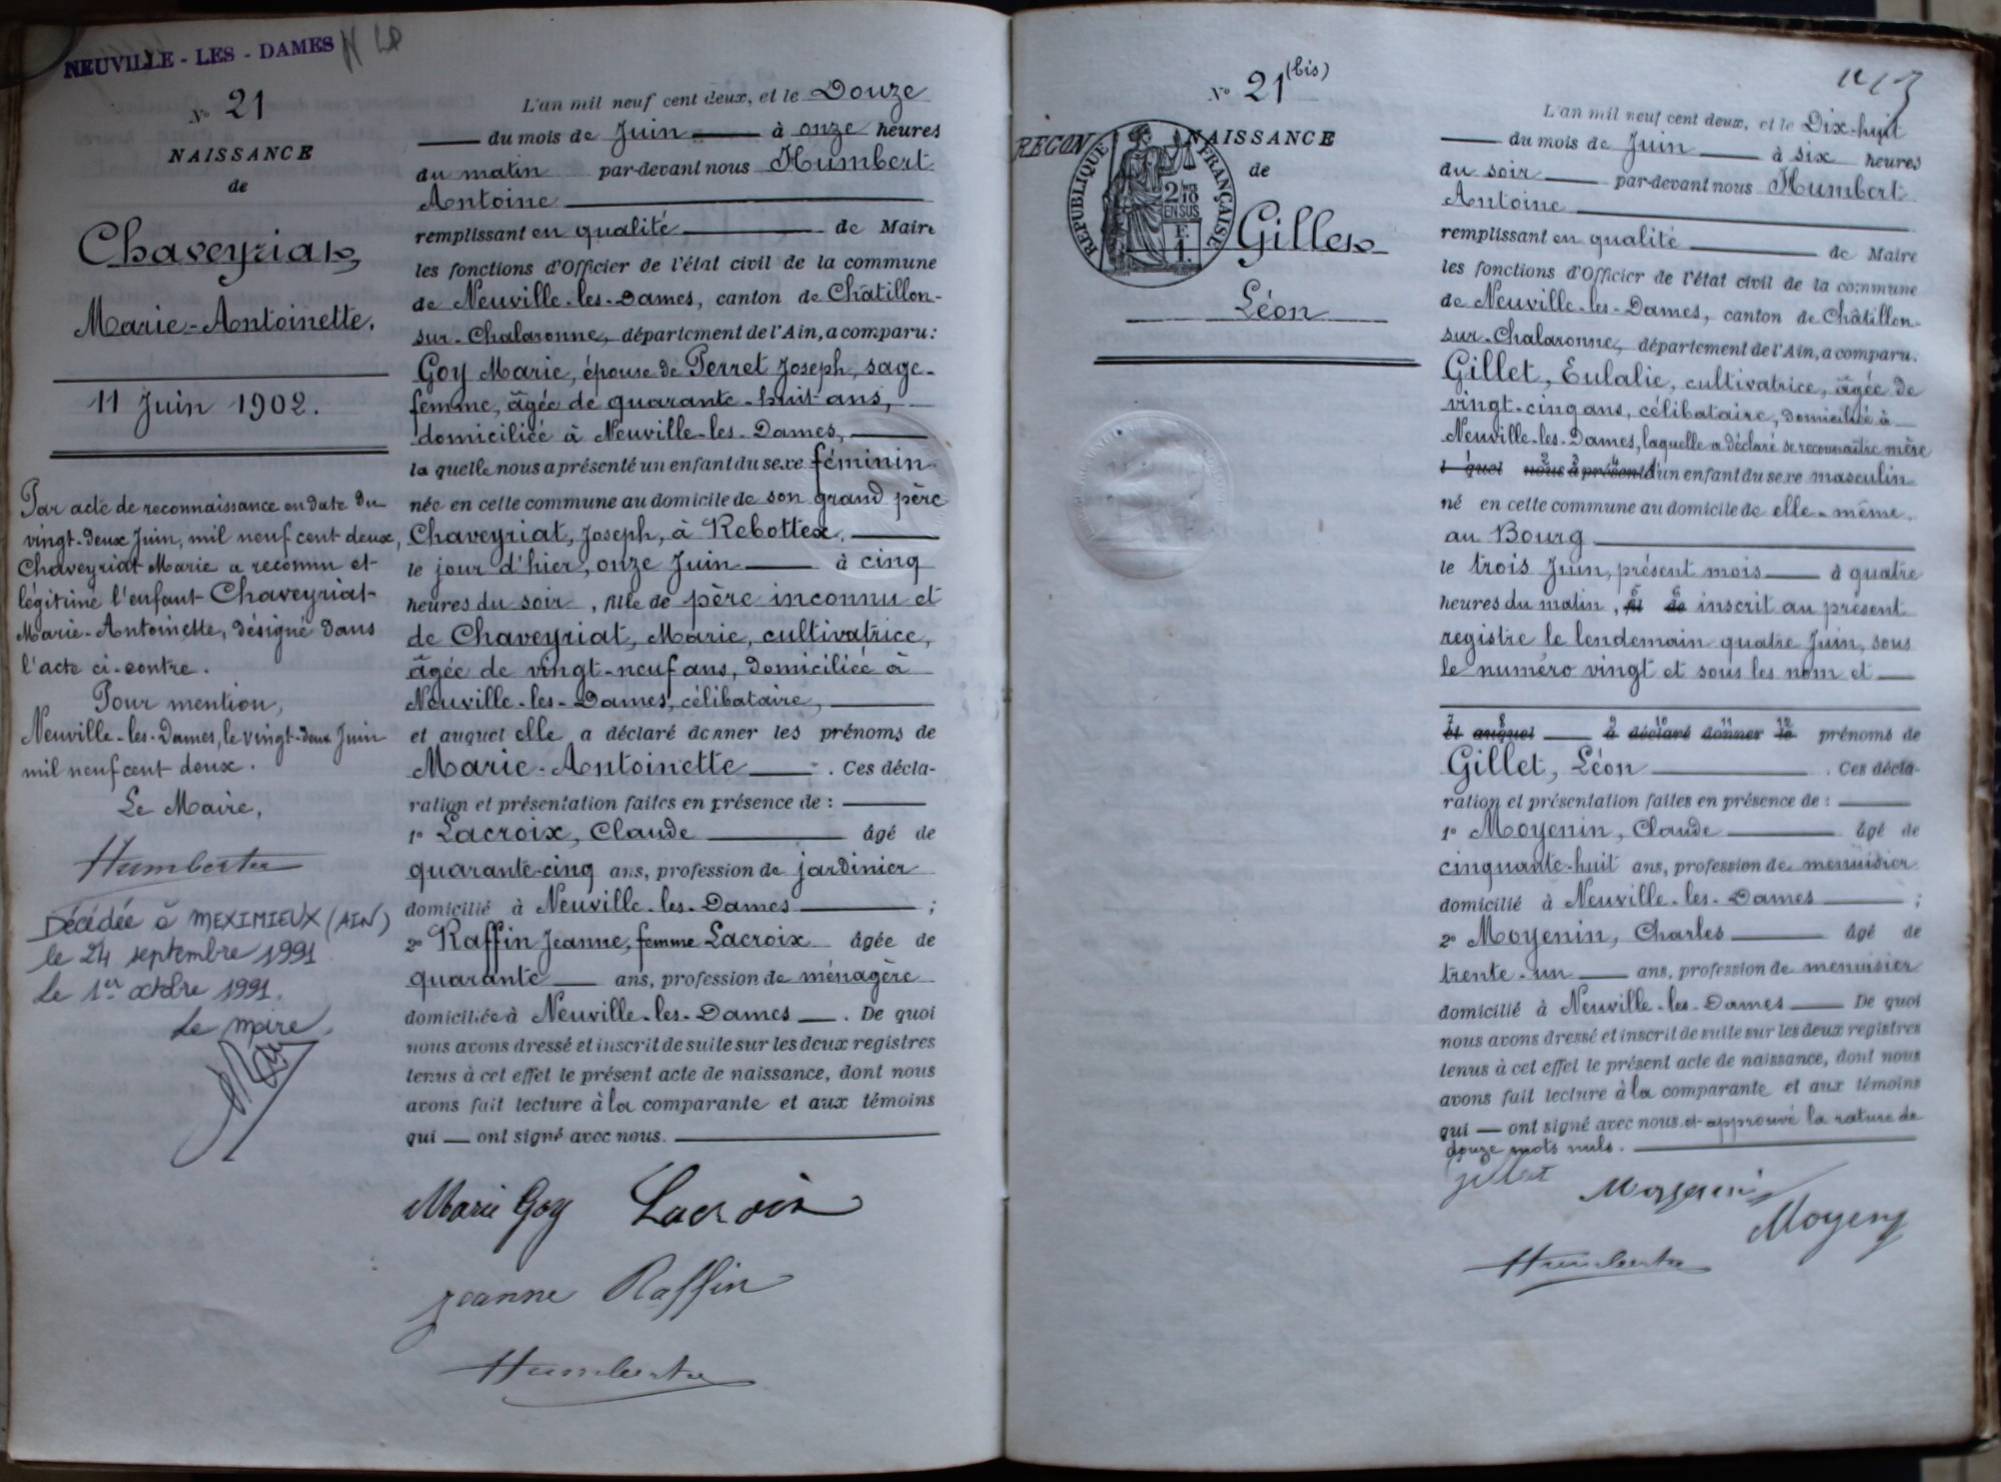 NEUVILLE - LES - DAMES
N° 21
NAISSANCE
de
Chaveyriat
Marie-Antoinette.
11 Juin 1902.
Par acte de reconnaissance en date du
vingt-deux Juin, mil neuf cent deux,
Chaveyriat Marie a reconnu et
légitimé l'enfant Chaveyriat
Marie-Antoinette, désigné dans
l'acte ci-contre.
Pour mention,
Neuville-les-Dames, le vingt-deux Juin
mil neuf cent deux.
Le Maire,
Humbert
Décédée à MEXIMIEUX (AIN)
le 24 septembre 1991
Le 1er octobre 1991.
Le maire,
L'an mil neuf cent deux, et le Douze
du mois de Juin à onze heures
du matin par-devant nous Humbert
Antoine
remplissant en qualité de Maire
les fonctions d'Officier de l'état civil de la commune
de Neuville-les-Dames, canton de Châtillon-
sur-Chalaronne, département de l'Ain, a comparu:
Goy Marie, épouse de Perret Joseph, sage-
femme, âgée de quarante-huit ans,
domiciliée à Neuville-les-Dames,
la quelle nous a présenté un enfant du sexe féminin
née en cette commune au domicile de son grand père
Chaveyriat, Joseph, à Rebottex,
le jour d'hier, onze Juin à cinq
heures du soir, fille de père inconnu et
de Chaveyriat, Marie, cultivatrice,
âgée de vingt-neuf ans, domiciliée à
Neuville-les-Dames, célibataire,
et auquel elle a déclaré donner les prénoms de
Marie-Antoinette. Ces décla-
ration et présentation faites en présence de :
1° Lacroix, Claude âgé de
quarante-cinq ans, profession de jardinier
domicilié à Neuville-les-Dames ;
2° Raffin Jeanne, femme Lacroix âgée de
quarante ans, profession de ménagère
domiciliée à Neuville-les-Dames. De quoi
nous avons dressé et inscrit de suite sur les deux registres
tenus à cet effet le présent acte de naissance, dont nous
avons fait lecture à la comparante et aux témoins
qui ont signé avec nous.
Marie Goy Lacroix
Jeanne Raffin
Humbert
N° 21 (bis)
RECON
NAISSANCE
de
REPUBLIQUE FRANÇAISE
2/10
EN SUS
F.
1.
Gillet
Léon
L'an mil neuf cent deux, et le Dix-huit
du mois de Juin à six heures
du soir par-devant nous Humbert
Antoine
remplissant en qualité de Maire
les fonctions d'Officier de l'état civil de la commune
de Neuville-les-Dames, canton de Châtillon-
sur-Chalaronne, département de l'Ain, a comparu.
Gillet, Eulalie, cultivatrice, âgée de
vingt-cinq ans, célibataire, domiciliée à
Neuville-les-Dames, laquelle a déclaré se reconnaître mère
l quel nous a présenté d'un enfant du sexe masculin
né en cette commune au domicile de elle-même,
au Bourg
le trois Juin, présent mois à quatre
heures du matin, fil de inscrit au présent
registre le lendemain quatre Juin, sous
le numéro vingt et sous les nom et
et auquel a déclaré donner le prénoms de
Gillet, Léon. Ces décla-
ration et présentation faites en présence de :
1° Moyenin, Claude âgé de
cinquante-huit ans, profession de menuisier
domicilié à Neuville-les-Dames ;
2° Moyenin, Charles âgé de
trente-un ans, profession de menuisier
domicilié à Neuville-les-Dames De quoi
nous avons dressé et inscrit de suite sur les deux registres
tenus à cet effet le présent acte de naissance, dont nous
avons fait lecture à la comparante et aux témoins
qui ont signé avec nous et approuvé la rature de
douze mots nuls.
gillet Moyenin
Moyenin
Humbert